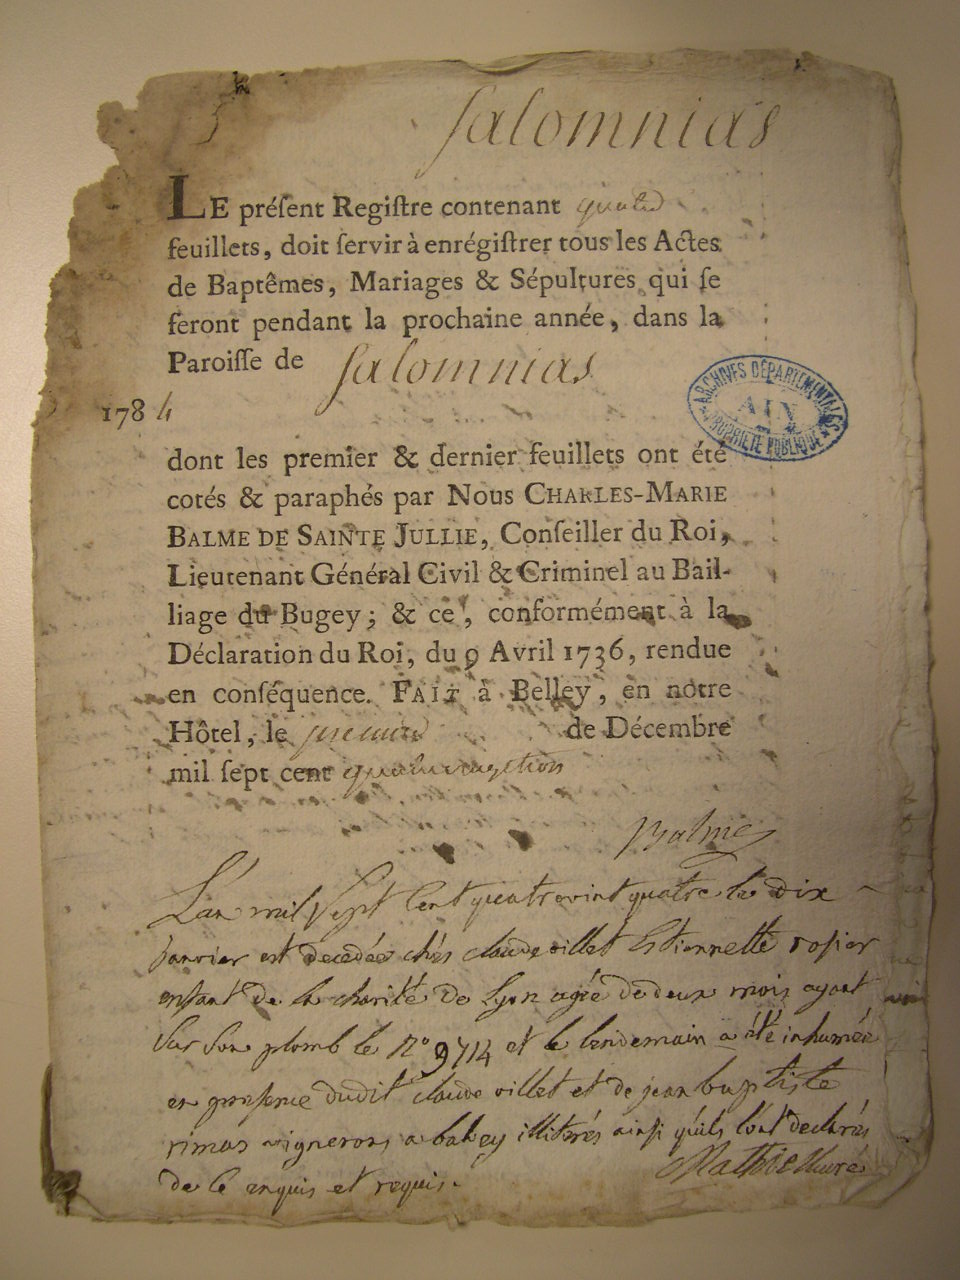 Salomnias
LE présent Registre contenant quatre
feuillets, doit servir à enrégistrer tous les Actes
de Baptêmes, Mariages & Sépultures qui se
feront pendant la prochaine année, dans la
Paroisse de Salomnias
1784
ARCHIVES DÉPARTEMENTALES
AIN
PROPRIÉTÉ PUBLIQUE
dont les premier & dernier feuillets ont été
cotés & paraphés par Nous CHARLES-MARIE
BALME DE SAINTE JULLIE, Conseiller du Roi,
Lieutenant Général Civil & Criminel au Bail-
liage du Bugey ; & ce, conformément à la
Déclaration du Roi, du 9 Avril 1736, rendue
en conséquence. FAIT à Belley, en notre
Hôtel, le premier de Décembre
mil sept cent quatrevingttrois
Balme
L'an mil Sept Cent quatrevint quatre le dix
janvier est decedée chés claude villet Estiennette rosier
enfant de la charité de Lyon agée de deux mois ayant
Sur Son plomb le N° 9714 et le lendemain a été inhumée
en presence dudit claude villet et de jean baptiste
rimas vignerons a illiterés ainsi qu'ils l'ont declarés
de ce enquis et requis.